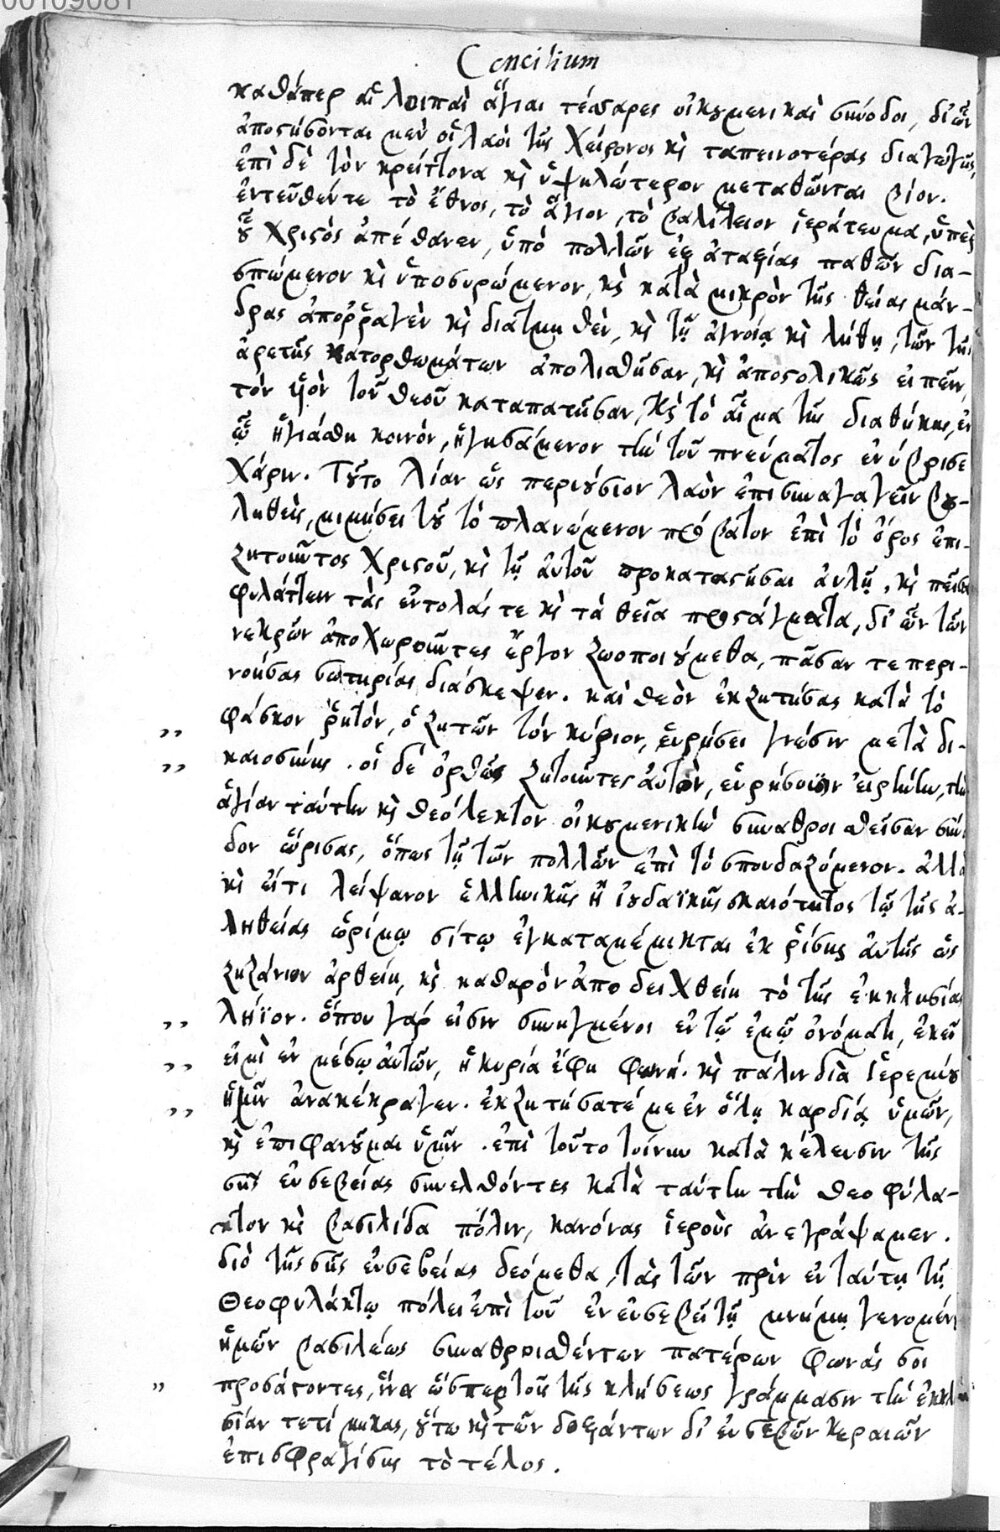 00109081
Concilium
καθάπερ αἱ λοιπαὶ ἅγιαι τέσσαρες οἰκουμενικαὶ σύνοδοι, δι' ὧν
ἀποστήσονται μὲν οἱ λαοὶ τῆς χείρονος καὶ ταπεινοτέρας διαγωγῆς,
ἐπὶ δὲ τὸν κρείττονα καὶ ὑψηλώτερον μεταθῶνται βίον.
ἐντεῦθέν τε τὸ ἔθνος, τὸ ἅγιον, τὸ βασίλειον ἱεράτευμα, ὑπὲρ
οὗ Χριστὸς ἀπέθανεν, ὑπὸ πολλῶν ἐξ ἀταξίας παθῶν δια-
σπώμενον καὶ ὑποσυρώμενον, καὶ κατὰ μικρὸν τῆς θείας μάν-
δρας ἀποῤῥαγὲν καὶ διατμηθὲν, καὶ τῇ ἀγνοίᾳ καὶ λήθῃ, τῶν τῆς
ἀρετῆς κατορθωμάτων ἀπολισθῆσαν, καὶ ἀποστολικῶς εἰπεῖν,
τὸν υἱὸν τοῦ θεοῦ καταπατῆσαν, καὶ τὸ αἷμα τῆς διαθήκης, ἐν
ᾧ ἡγιάσθη κοινὸν, ἡγησάμενον τὴν τοῦ πνεύματος ἐνύβρισε
χάριν. Τοῦτο λίαν ὡς περιούσιον λαὸν ἐπισυναγαγεῖν βου-
ληθεὶς, μιμήσει τοῦ τὸ πλανώμενον πρόβατον ἐπὶ τὸ ὄρος ἐπι-
ζητοῦντος Χριστοῦ, καὶ τῇ αὐτοῦ προκαταστῆσαι αὐλῇ, καὶ πεῖσαι
φυλάττειν τὰς ἐντολάς τε καὶ τὰ θεῖα προστάγματα, δι' ὧν τῶν
νεκρῶν ἀποχωροῦντες ἔργων ζωοποιούμεθα, πᾶσαν τε περι-
νοήσας σωτηρίας διάσκεψιν. καὶ θεὸν ἐκζητήσας κατὰ τὸ
φάσκον ῥητὸν, ὁ ζητῶν τὸν κύριον, εὑρήσει γνῶσιν μετὰ δι-
καιοσύνης. οἱ δὲ ὀρθῶς ζητοῦντες αὐτὸν, εὑρήσουσιν εἰρήνην, τὴν
ἁγίαν ταύτην καὶ θεόλεκτον οἰκουμενικὴν συναθροισθεῖσαν σύνο
δον ὥρισας, ὅπως τῇ τῶν πολλῶν ἐπὶ τὸ σπουδαζόμενον. ἀλλὰ
καὶ εἴ τι λείψανον ἑλληνικῆς ἢ ἰουδαϊκῆς σκαιότητος τῷ τῆς ἀ-
ληθείας ὡρίμῳ σίτῳ ἐγκαταμέμικται ἐκ ῥίζης αὐτῆς ὡς
ζιζάνιον ἀρθείη, καὶ καθαρὸν ἀποδειχθείη τὸ τῆς ἐκκλησίας
λήϊον. ὅπου γάρ εἰσιν συνηγμένοι ἐν τῷ ἐμῷ ὀνόματι, ἐκεῖ
εἰμὶ ἐν μέσῳ αὐτῶν, ἡ κυρία ἔφη φωνή. καὶ πάλιν διὰ Ἱερεμίου
ἡμῖν ἀνακέκραγεν. ἐκζητήσατέ με ἐν ὅλῃ καρδίᾳ ὑμῶν,
καὶ ἐπιφανοῦμαι ὑμῖν. ἐπὶ τοῦτο τοίνυν κατὰ κέλευσιν τῆς
σῆς εὐσεβείας συνελθόντες κατὰ ταύτην τὴν θεοφύλα-
κτον καὶ βασιλίδα πόλιν, κανόνας ἱεροὺς ἀνεγράψαμεν.
διὸ τῆς σῆς εὐσεβείας δεόμεθα, τὰς τῶν πρὶν ἐν ταύτῃ τῇ
θεοφυλάκτῳ πόλει ἐπὶ τοῦ ἐν εὐσεβεῖ τῇ μνήμῃ γενομένου
ἡμῶν βασιλέως συναθροισθέντων πατέρων φωνάς σοι
προσάγοντες, ἵνα ὥσπερ τοῖς τῆς κλήσεως γράμμασιν τὴν ἐκκλη
σίαν τετίμηκας, οὕτω καὶ τῶν δοξάντων δι' εὐσεβῶν κεραιῶν
ἐπισφραγίσῃς τὸ τέλος.